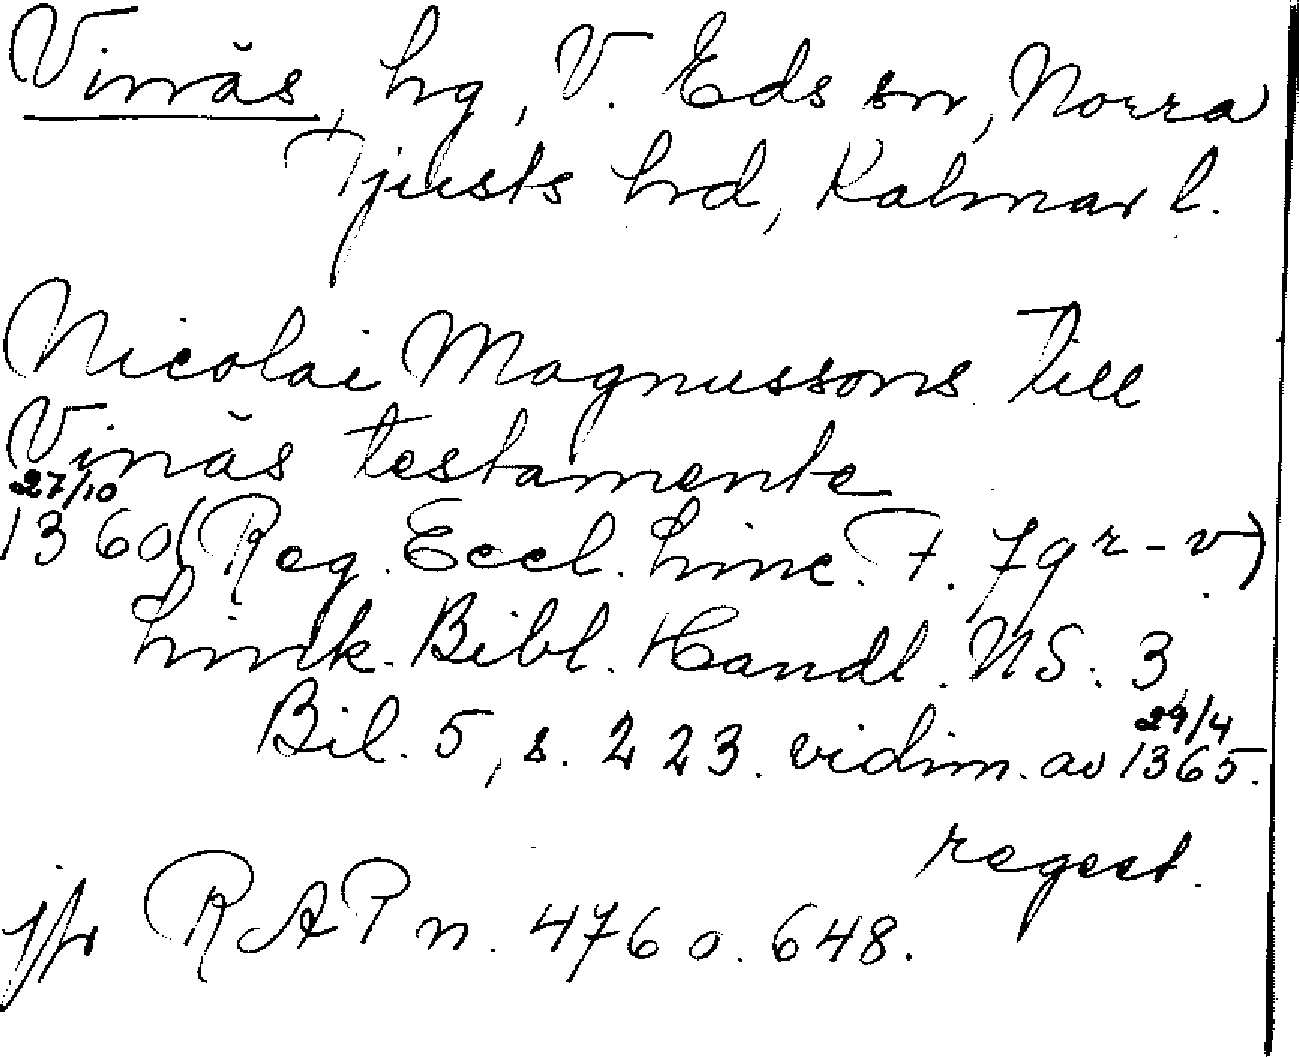 Vinäs, hg, V. Eds sn, Norra
Tjusts hrd, Kalmar l.
Nicolai Magnussons till
Vinäs testamente
27/10
1360 (Reg. Eccl. Linc. F. 79r-v)
Link. Bibl. Handl. NS. 3
Bil. 5, s. 223. vidim. av 29/4 1365.
regest.
jfr RAP n. 476 o. 648.